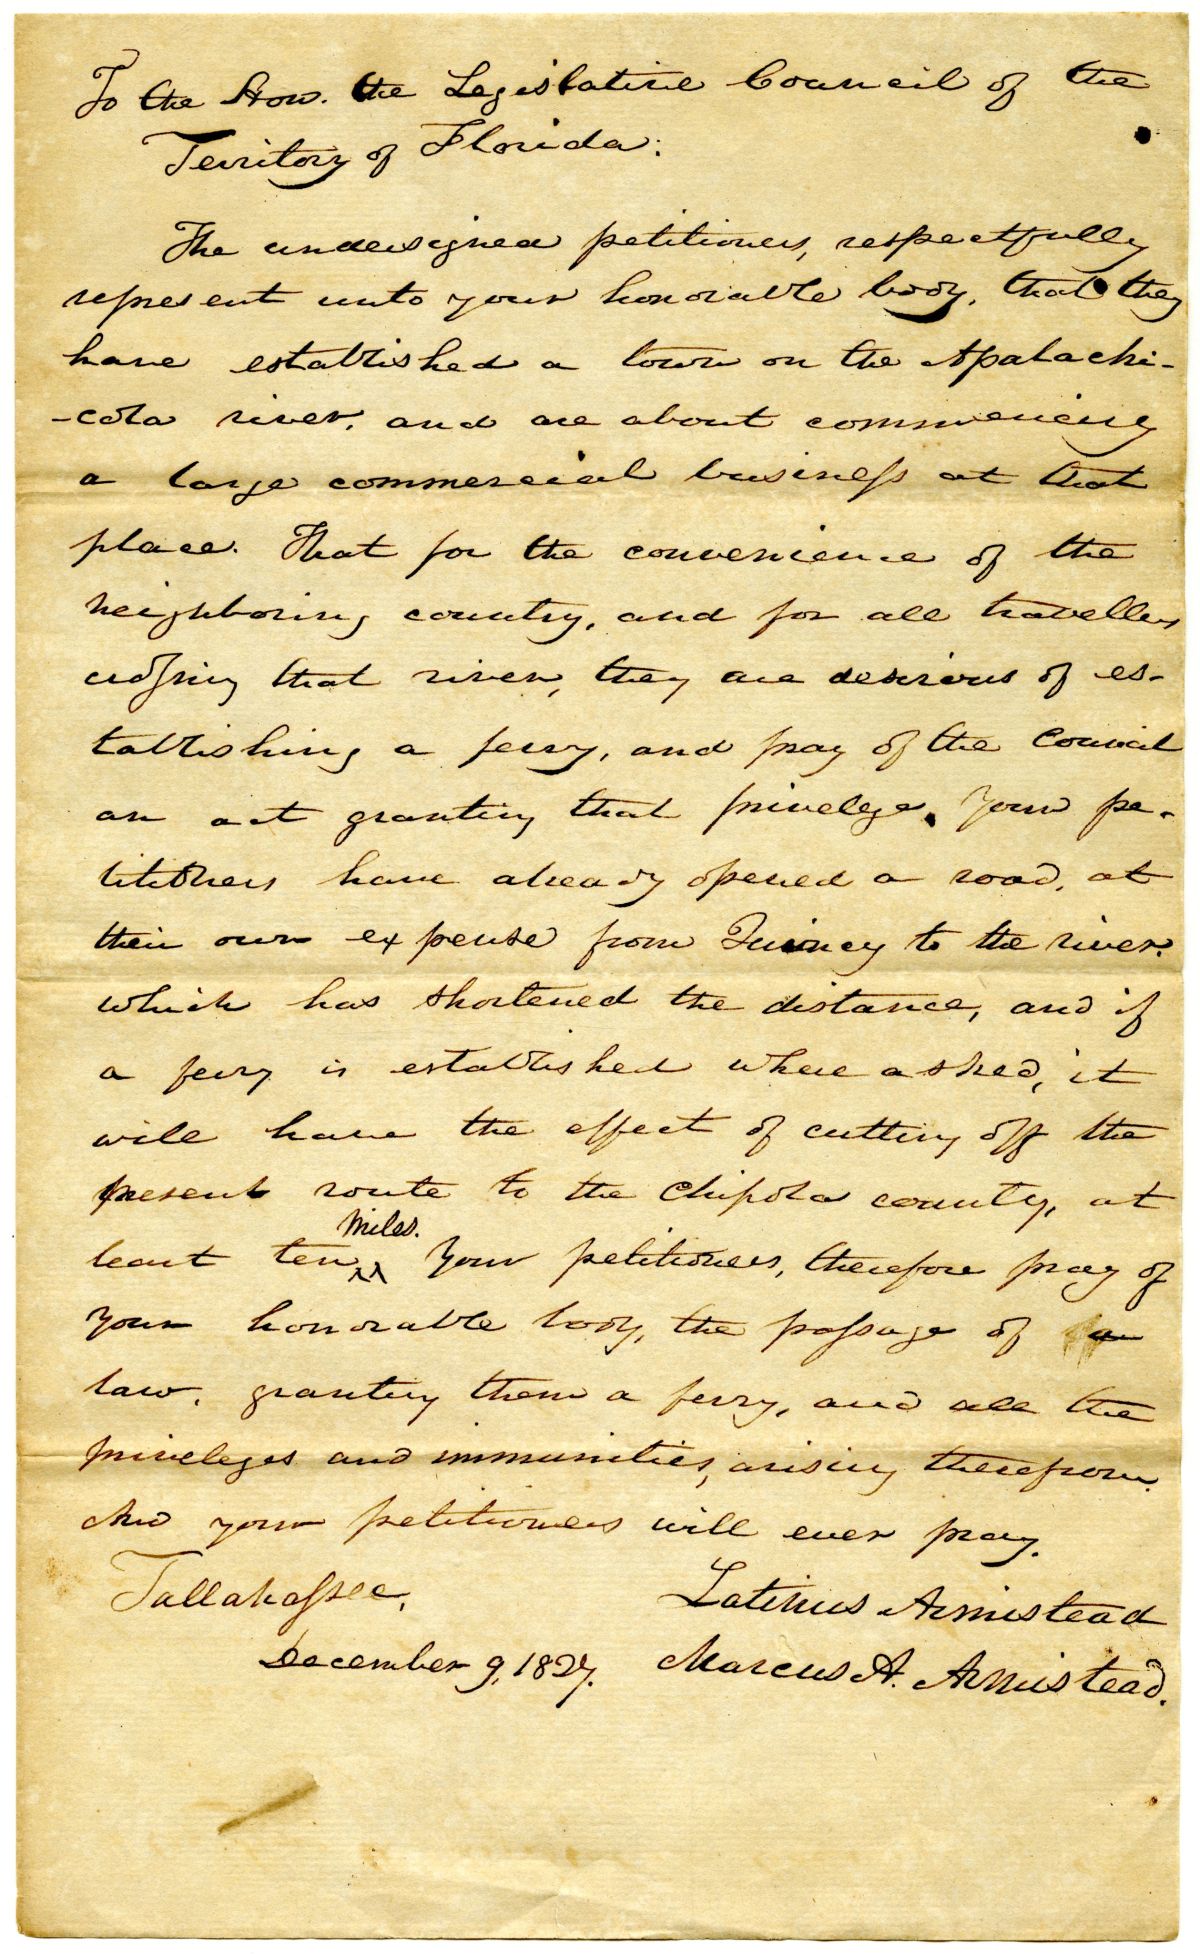 To the Hon. the Legislative Council of the
Territory of Florida:
The undersigned petitioners, respectfully
represent unto your honorable body, that they
have established a town on the Apalachi-
-cola river, and are about commencing
a large commercial business at that
place. That for the convenience of the
neighboring country, and for all travellers
crossing that river, they are desirous of es-
tablishing a ferry, and pray of the Council
an act granting that privelege. Your pe-
titioners have already opened a road, at
their own expense from Quincy to the river.
which has shortened the distance, and if
a ferry is established where asked, it
will have the effect of cutting off the
present route to the Chipola county, at
miles.
least ten Your petitioners, therefore pray of
your honorable body, the passage of a
law, granting them a ferry, and all the
priveleges and immunities, arising therefrom.
And your petitioners will ever pray.
Tallahassee, Latinus Armistead
December 9, 1827. Marcus A. Armistead.